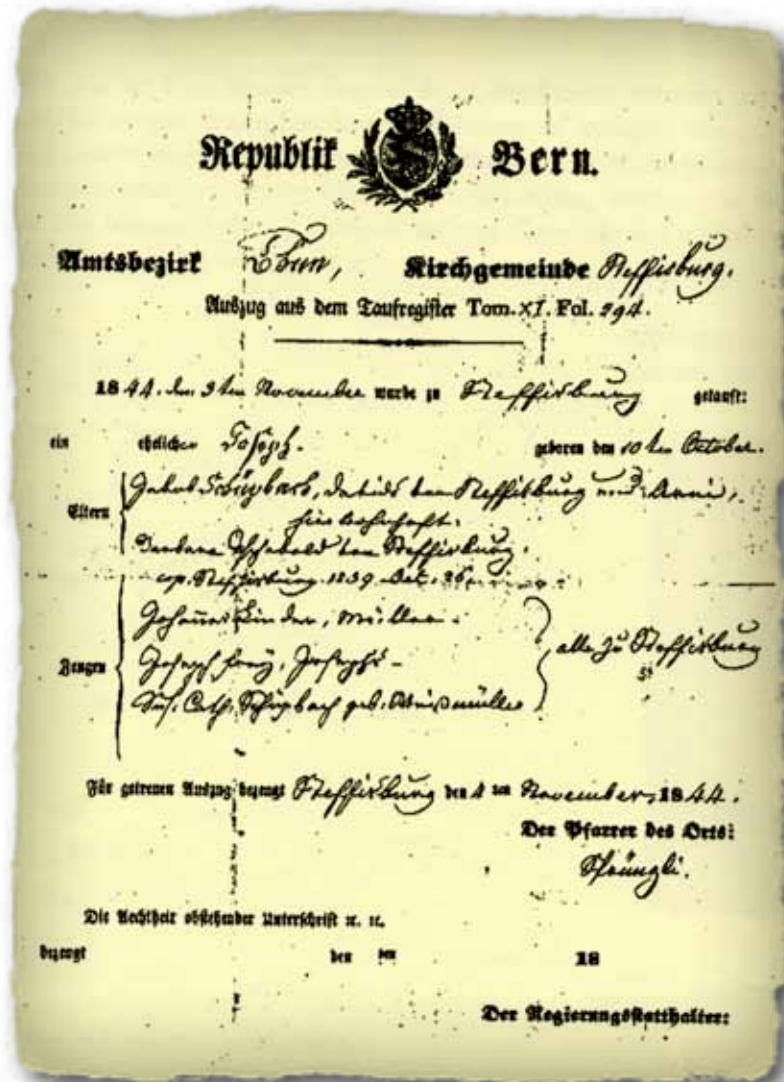 Republik Bern.
Amtsbezirk Thun, Kirchgemeinde Steffisburg.
Auszug aus dem Taufregister Tom. XI. Fol. 294.
1844. den 3ten November wurde zu Steffisburg getauft:
ein ehelicher Joseph. geboren den 10ten October.
Eltern
Jakob Schüpbach, Davids von Steffisburg und Anni,
hier wohnhaft.
von Steffisburg.
cop. Steffisburg 1839
Zeugen
Johannes Linder, Müller.
Joseph Frey, Josephs
alle zu Steffisburg
Sus. Cath. Schüpbach geb.
Für getreuen Auszug bezeugt Steffisburg den 4ten November, 1844.
Der Pfarrer des Orts:
Sprüngli.
Die Aechtheit obstehender Unterschrift ꝛc. ꝛc.
bezeugt den ten 18
Der Regierungsstatthalter: